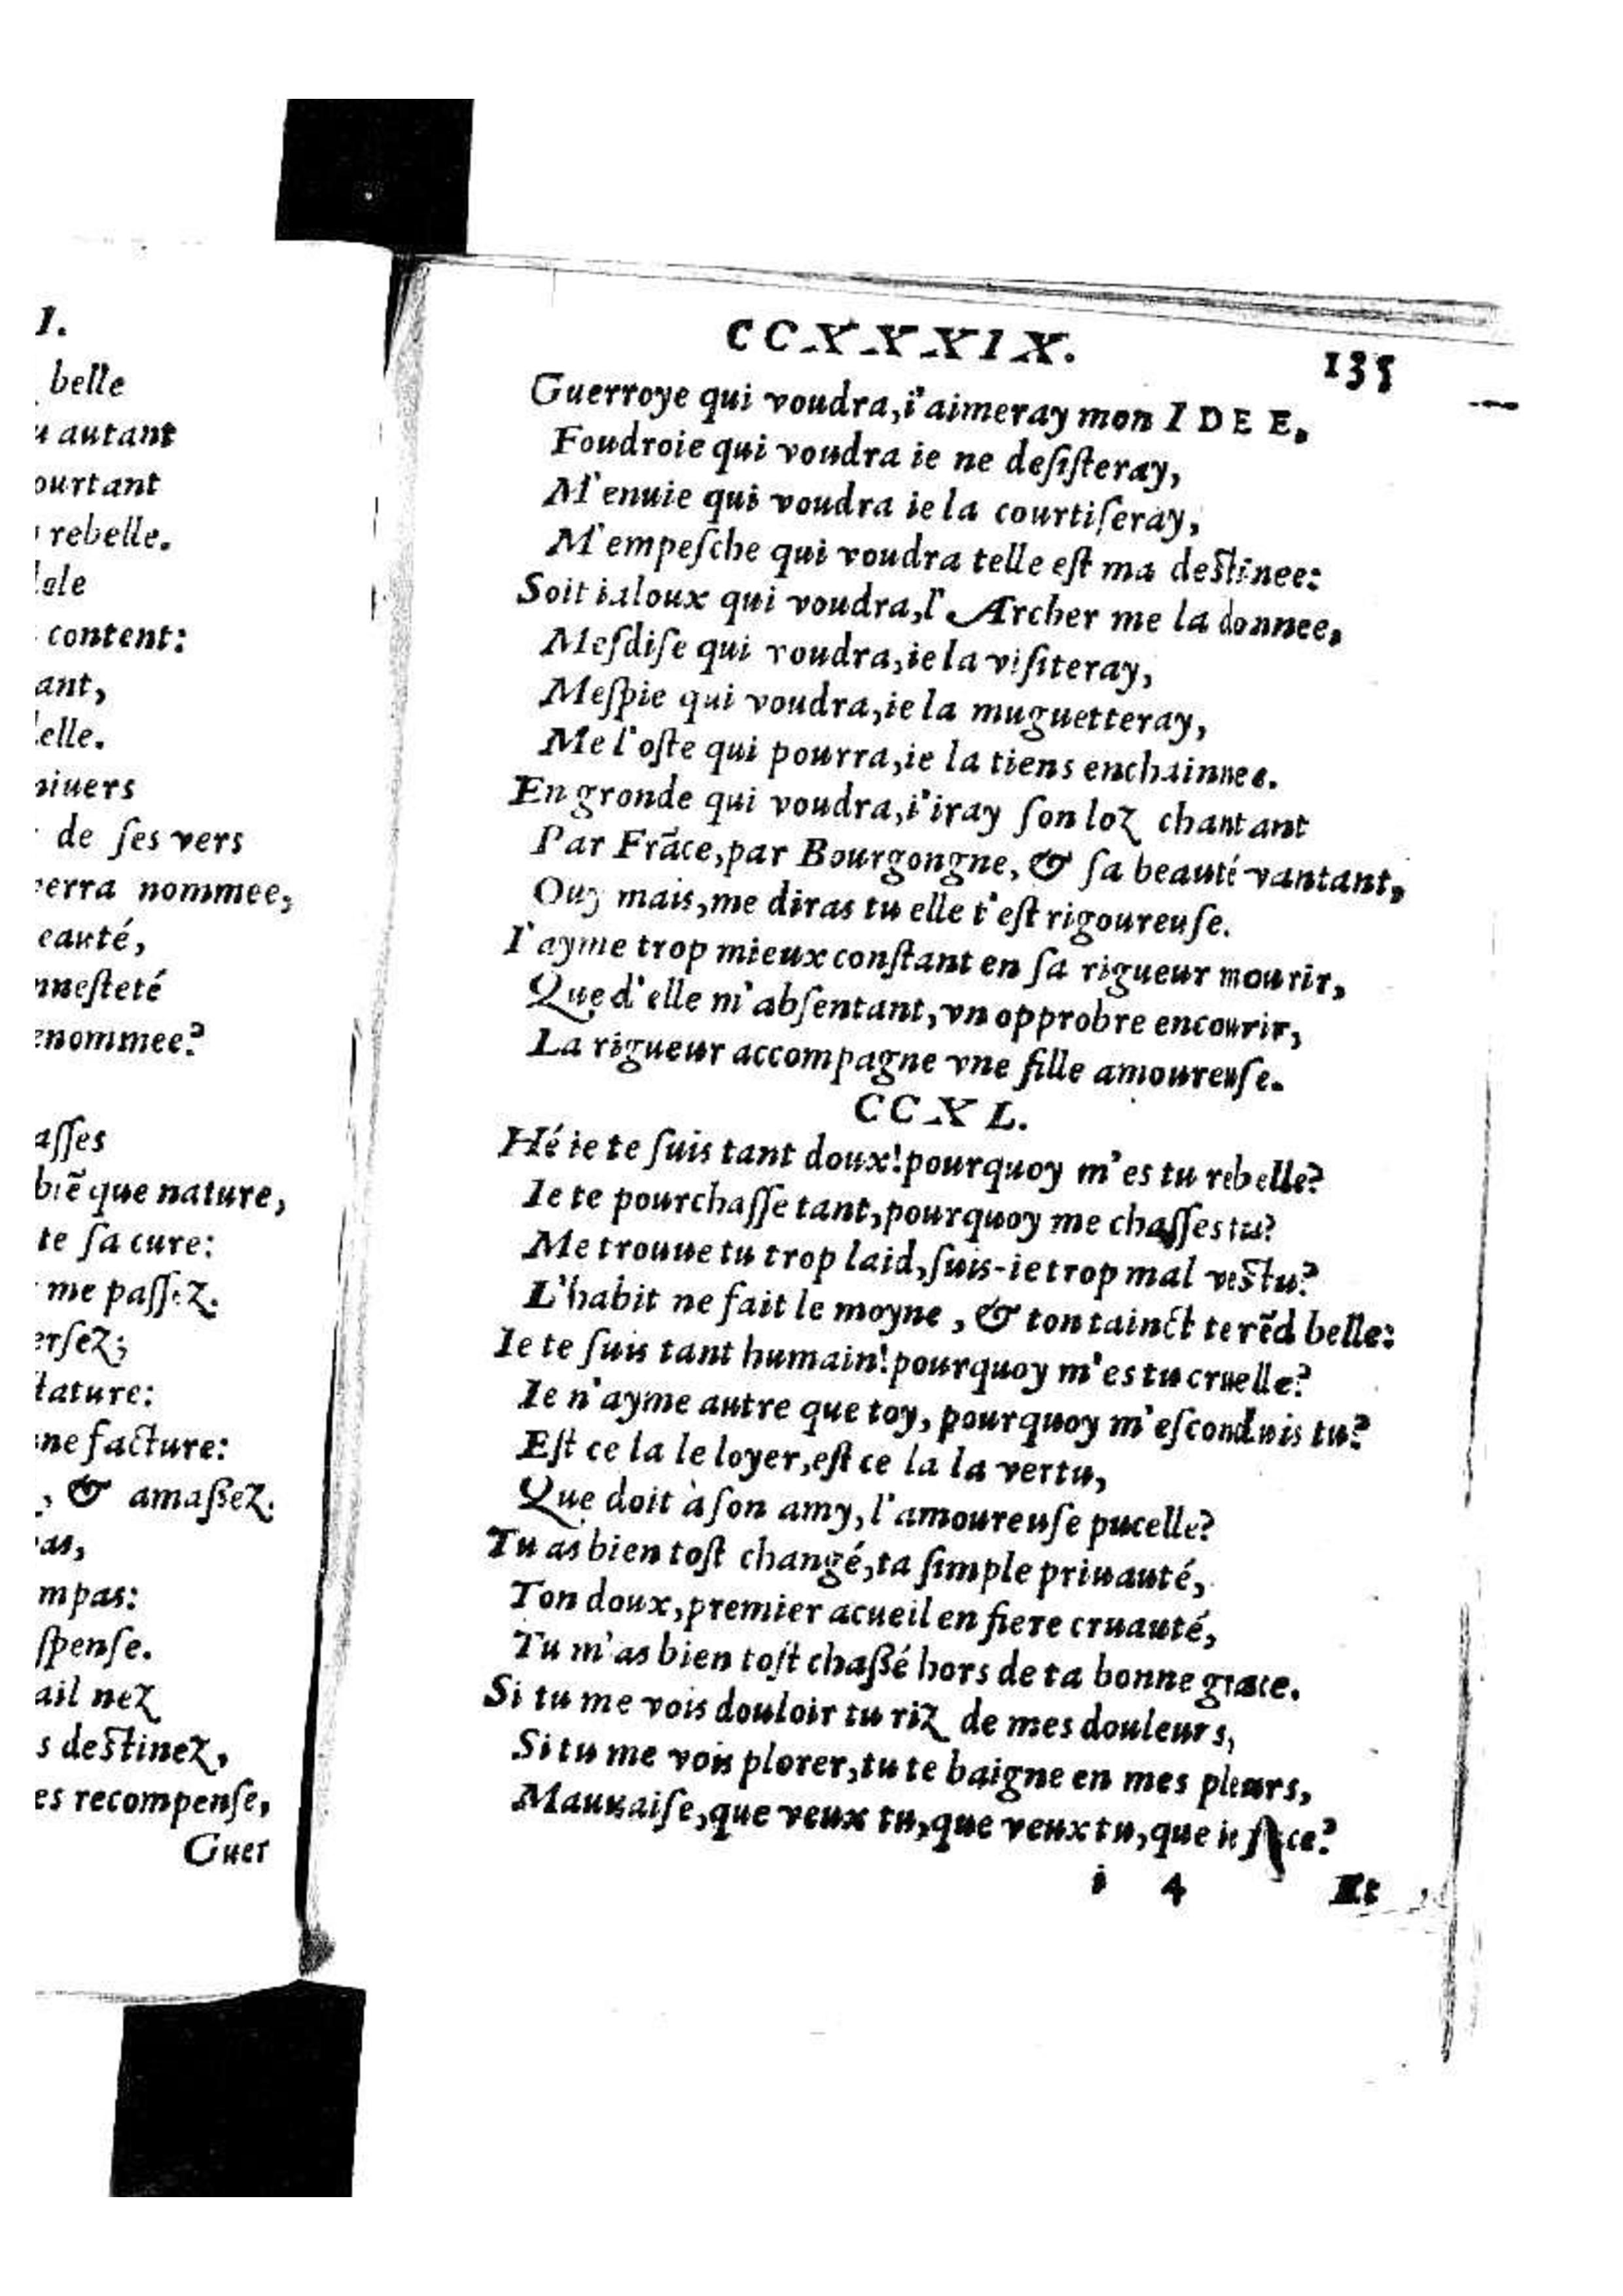 I.
belle
u autant
ourtant
rebelle.
content:
ant,
elle.
niuers
de ſes vers
erra nommee,
eauté,
nneſteté
enommee?
aſſes
biẽ que nature,
te ſa cure:
me paſſez.
erſez;
tature:
ne facture:
, & amaßez.
as,
mpas:
ſpenſe.
ail nez
s deſtinez,
es recompenſe,
Guer
CCXXXIX.
135
Guerroye qui voudra, i'aimeray mon IDEE,
Foudroie qui voudra ie ne deſiſteray,
M'enuie qui voudra ie la courtiſeray,
M'empeſche qui voudra telle eſt ma deſtinee:
Soit ialoux qui voudra, l'Archer me la donnee,
Meſdiſe qui voudra, ie la viſiteray,
Meſpie qui voudra, ie la muguetteray,
Me l'oſte qui pourra, ie la tiens enchainnee.
En gronde qui voudra, i'iray ſon loz chantant
Par Frãce, par Bourgongne, & ſa beauté vantant,
Ouy mais, me diras tu elle t'eſt rigoureuſe.
I'ayme trop mieux conſtant en ſa rigueur mourir,
Que d'elle m'abſentant, vn opprobre encourir,
La rigueur accompagne vne fille amoureuſe.
CCXL.
Hé ie te ſuis tant doux! pourquoy m'es tu rebelle?
Ie te pourchaſſe tant, pourquoy me chaſſes tu?
Me trouue tu trop laid, ſuis-ie trop mal veſtu?
L'habit ne fait le moyne, & ton tainct te rẽd belle:
Ie te ſuis tant humain! pourquoy m'es tu cruelle?
Ie n'ayme autre que toy, pourquoy m'eſconduis tu?
Eſt ce la le loyer, eſt ce la la vertu,
Que doit à ſon amy, l'amoureuſe pucelle?
Tu as bien toſt changé, ta ſimple priuauté,
Ton doux, premier acueil en fiere cruauté,
Tu m'as bien toſt chaßé hors de ta bonne grace.
Si tu me vois douloir tu riz de mes douleurs,
Si tu me vois plorer, tu te baigne en mes pleurs,
Mauuaiſe, que veux tu, que veux tu, que ie
i 4
Et